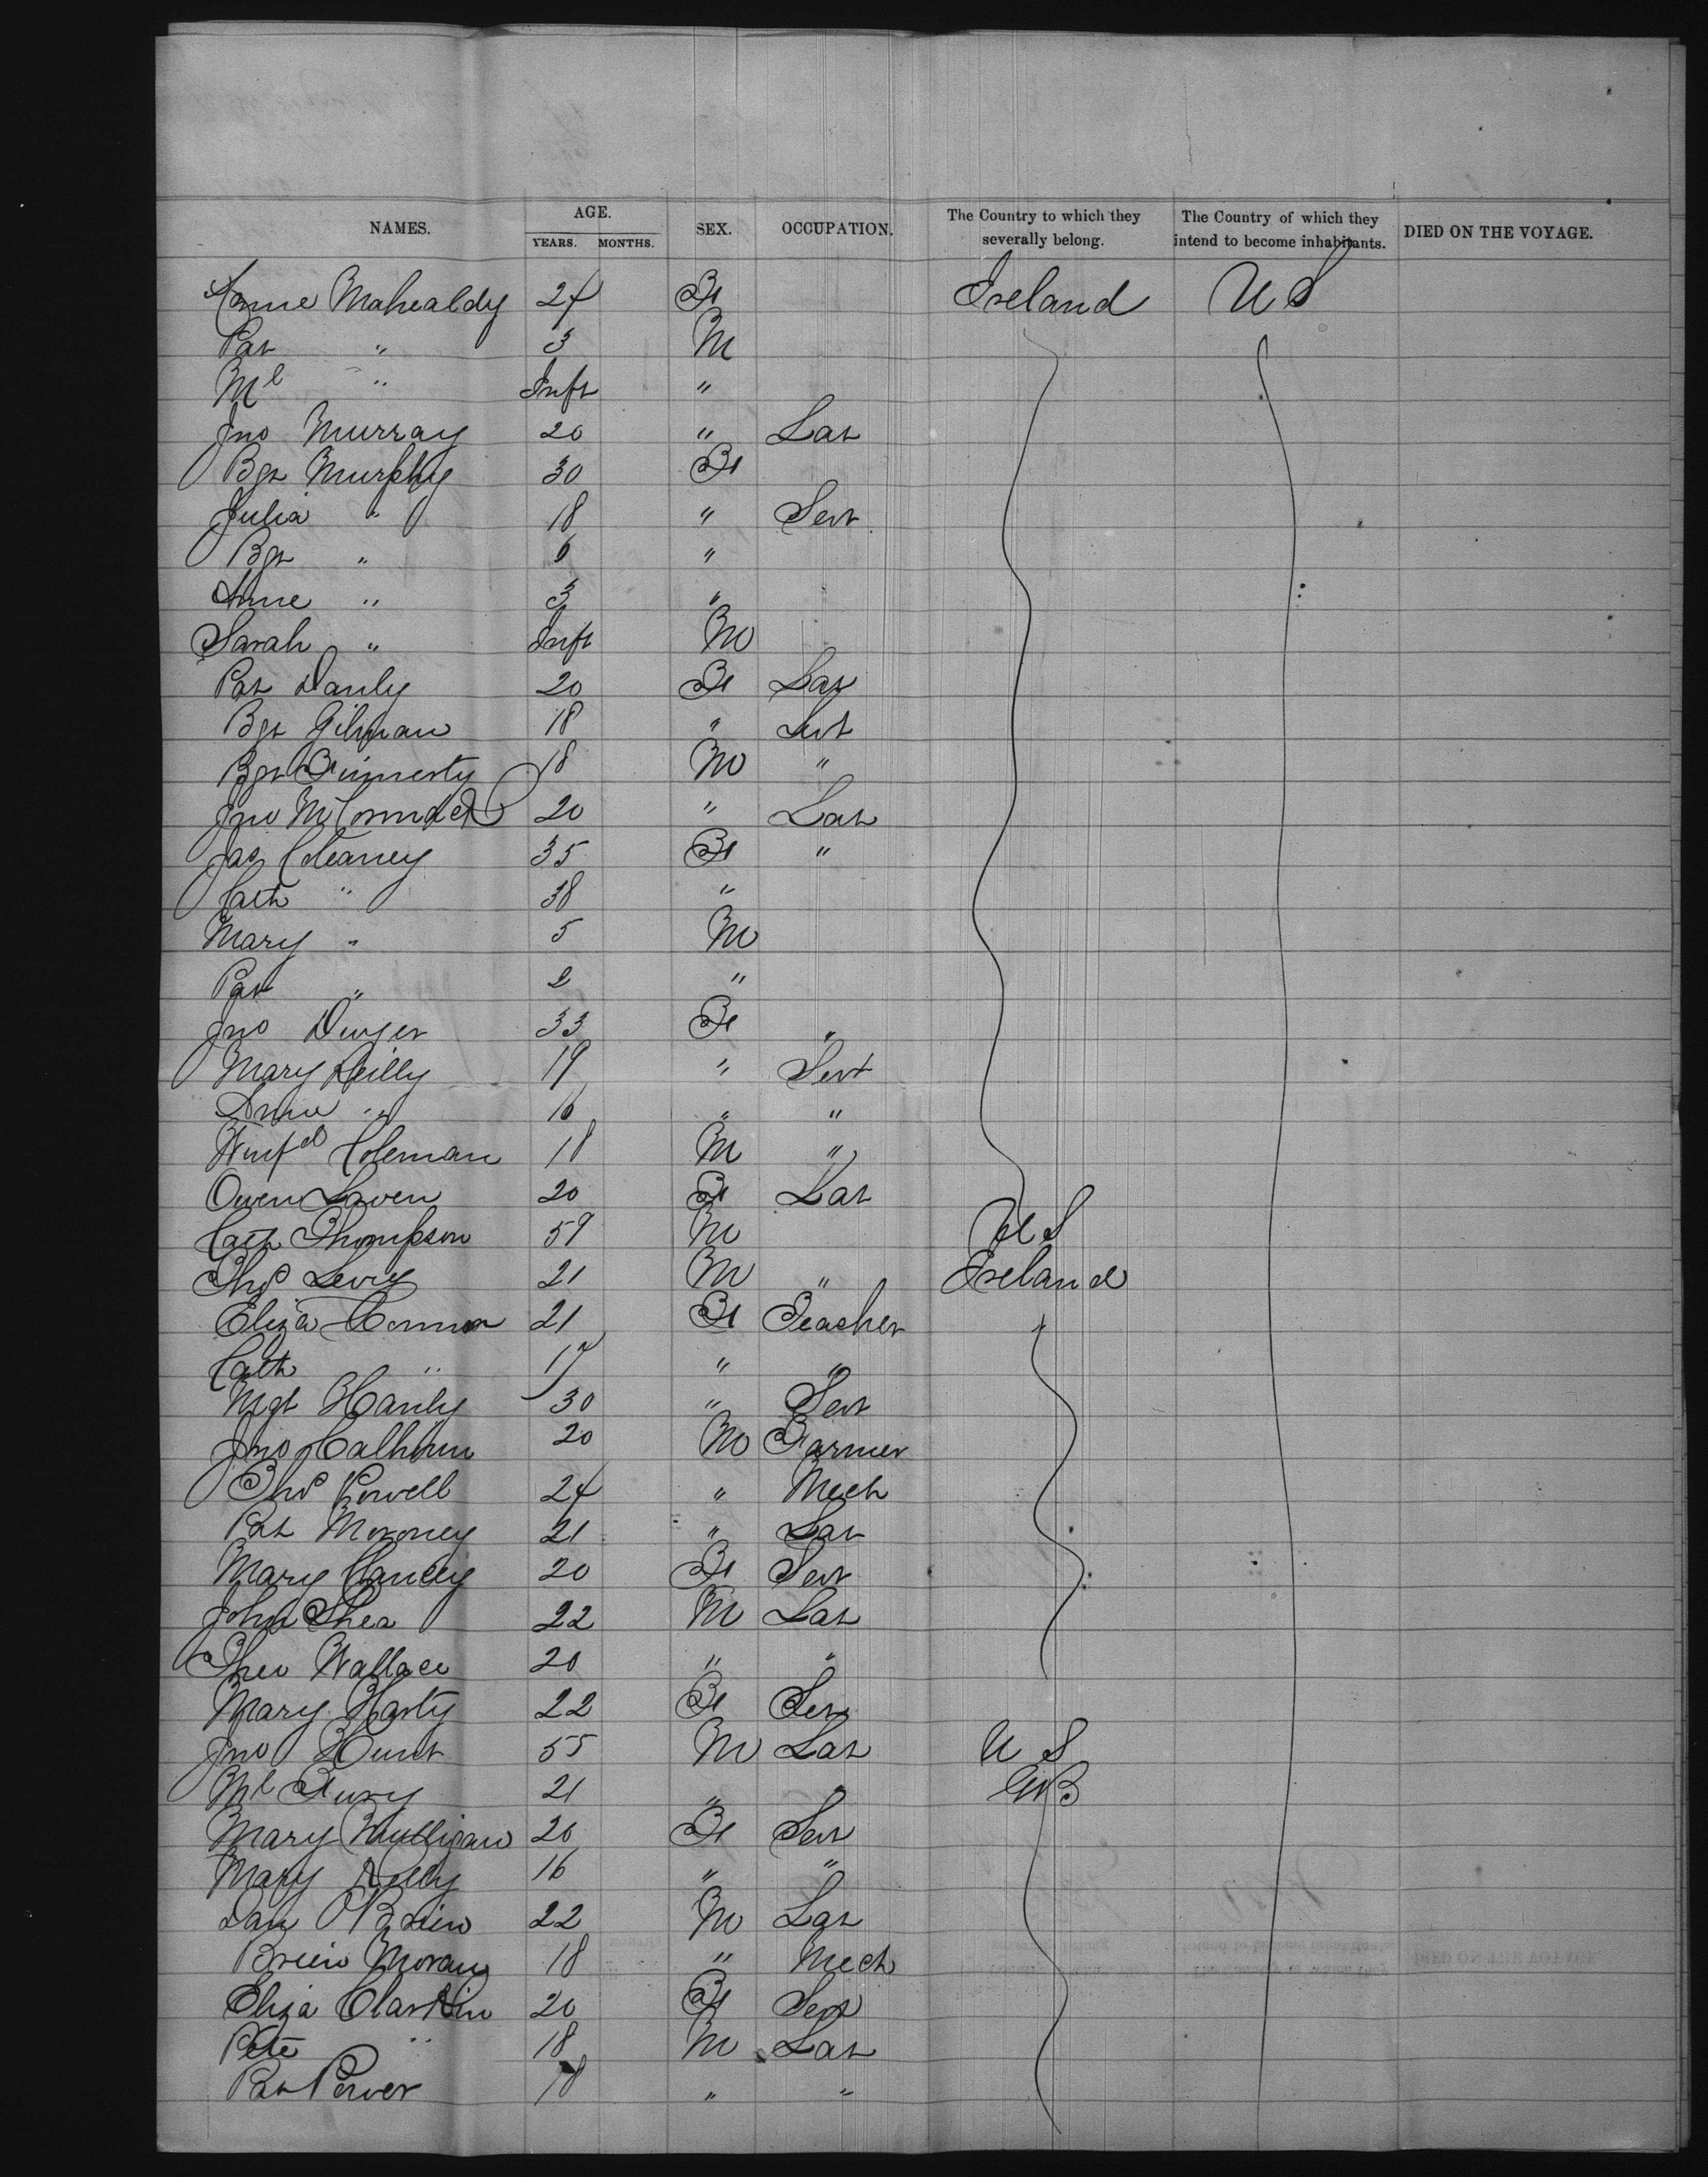 NAMES. AGE. YEARS. MONTHS. SEX. OCCUPATION. The Country to which they severally belong. The Country of which they intend to become inhabitants. DIED ON THE VOYAGE.
Anne Mahealdy 24 F Ireland U S
Pat " 3 M
Ml " Inft "
Jno Murray 20 " Lab
Bgt Murphy 30 F
Julia " 18 " Sert
Bgt " 6 "
Anne " 3 "
Sarah " Inft M
Pat Danly 20 F Lab
Bgt Gilman 18 " Sert
Bgt Finnerty 18 M "
Jno McCormack 20 " Lab
Jas Cleaney 35 F "
Cath " 38 "
Mary " 5 M
Pat " 2 "
Jno Dwyer 33 F "
Mary Reilly 19 " Sert
Anne " 16 " "
Winfd Coleman 18 M "
Owen Laven 20 F Lab
Cath Thompson 59 M U S
Thos Levry 21 M " Ireland
Eliza Connor 21 F Teacher
Cath " 17 " "
Mgt Hanly 30 " Sert
Jno Calhoun 20 M Farmer
Thos Powell 24 " Mech
Pat Moroney 21 " Lab
Mary Clancy 20 F Sert
John Shea 22 M Lab
Theo Wallace 20 " "
Mary Harty 22 F Sert
Jno Hunt 55 M Lab U S
Ml Fury 21 " " GB
Mary Mulligan 20 F Sert
Mary Reilly 16 " "
Dan O'Brien 22 M Lab
Brien Moran 18 " Mech
Eliza Clarkin 20 F Sert
Pete " 18 M Lab
Pat Power 18 " "